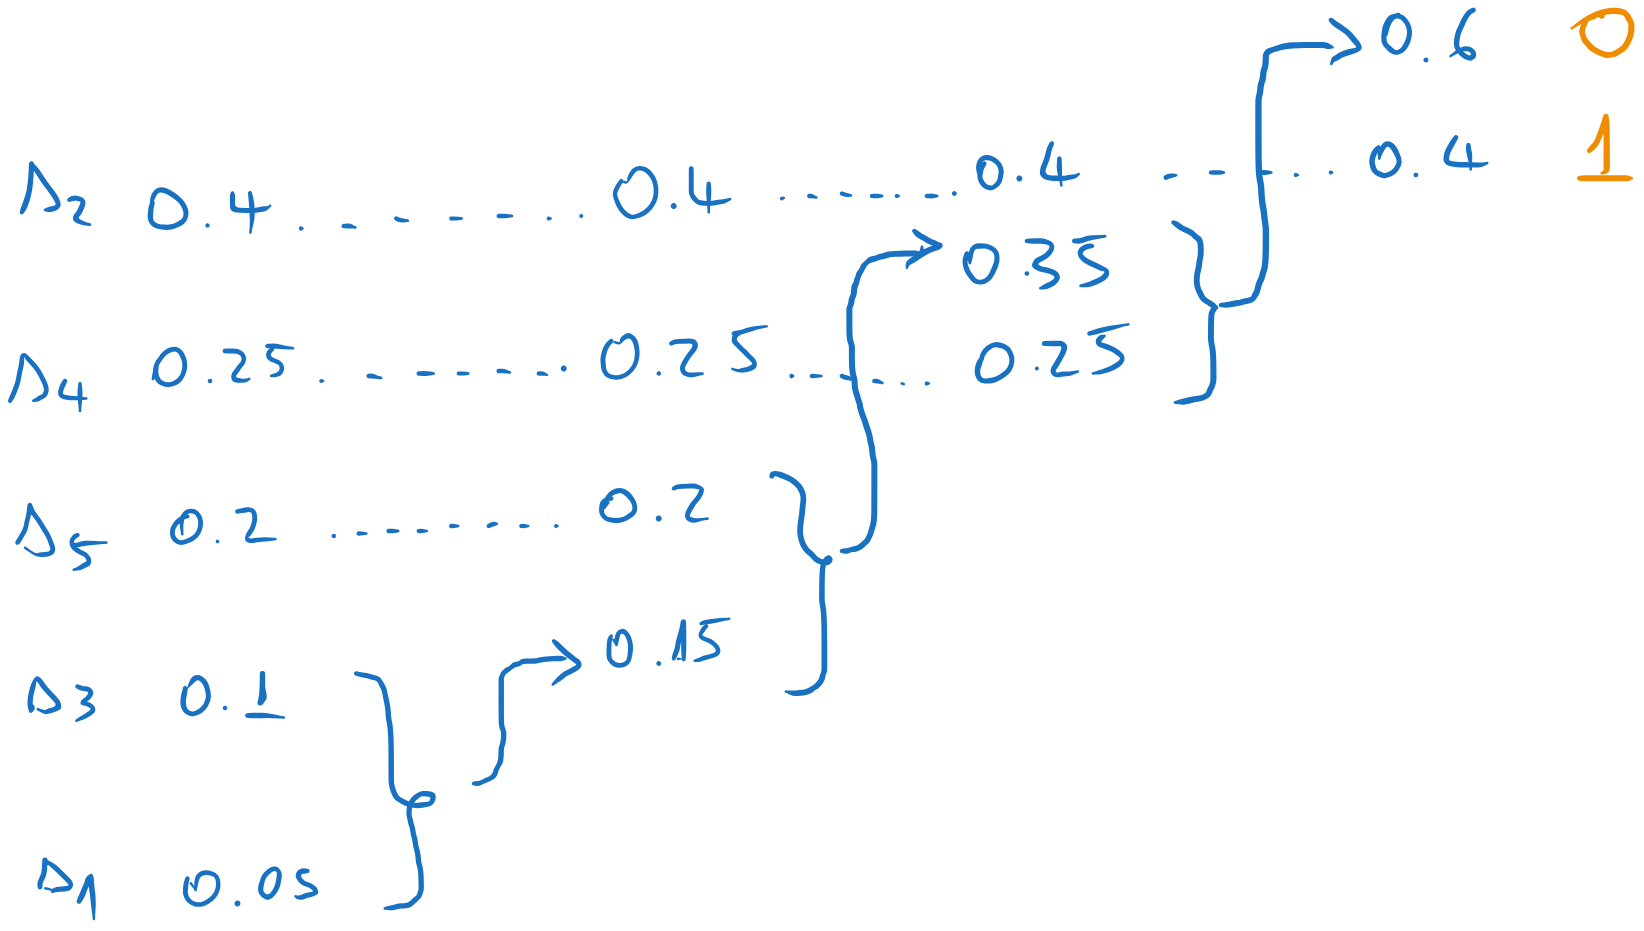 0.6 0
s2 0.4 0.4 0.4 0.4 1
0.35
s4 0.25 0.25 0.25
s5 0.2 0.2
0.15
s3 0.1
s1 0.05